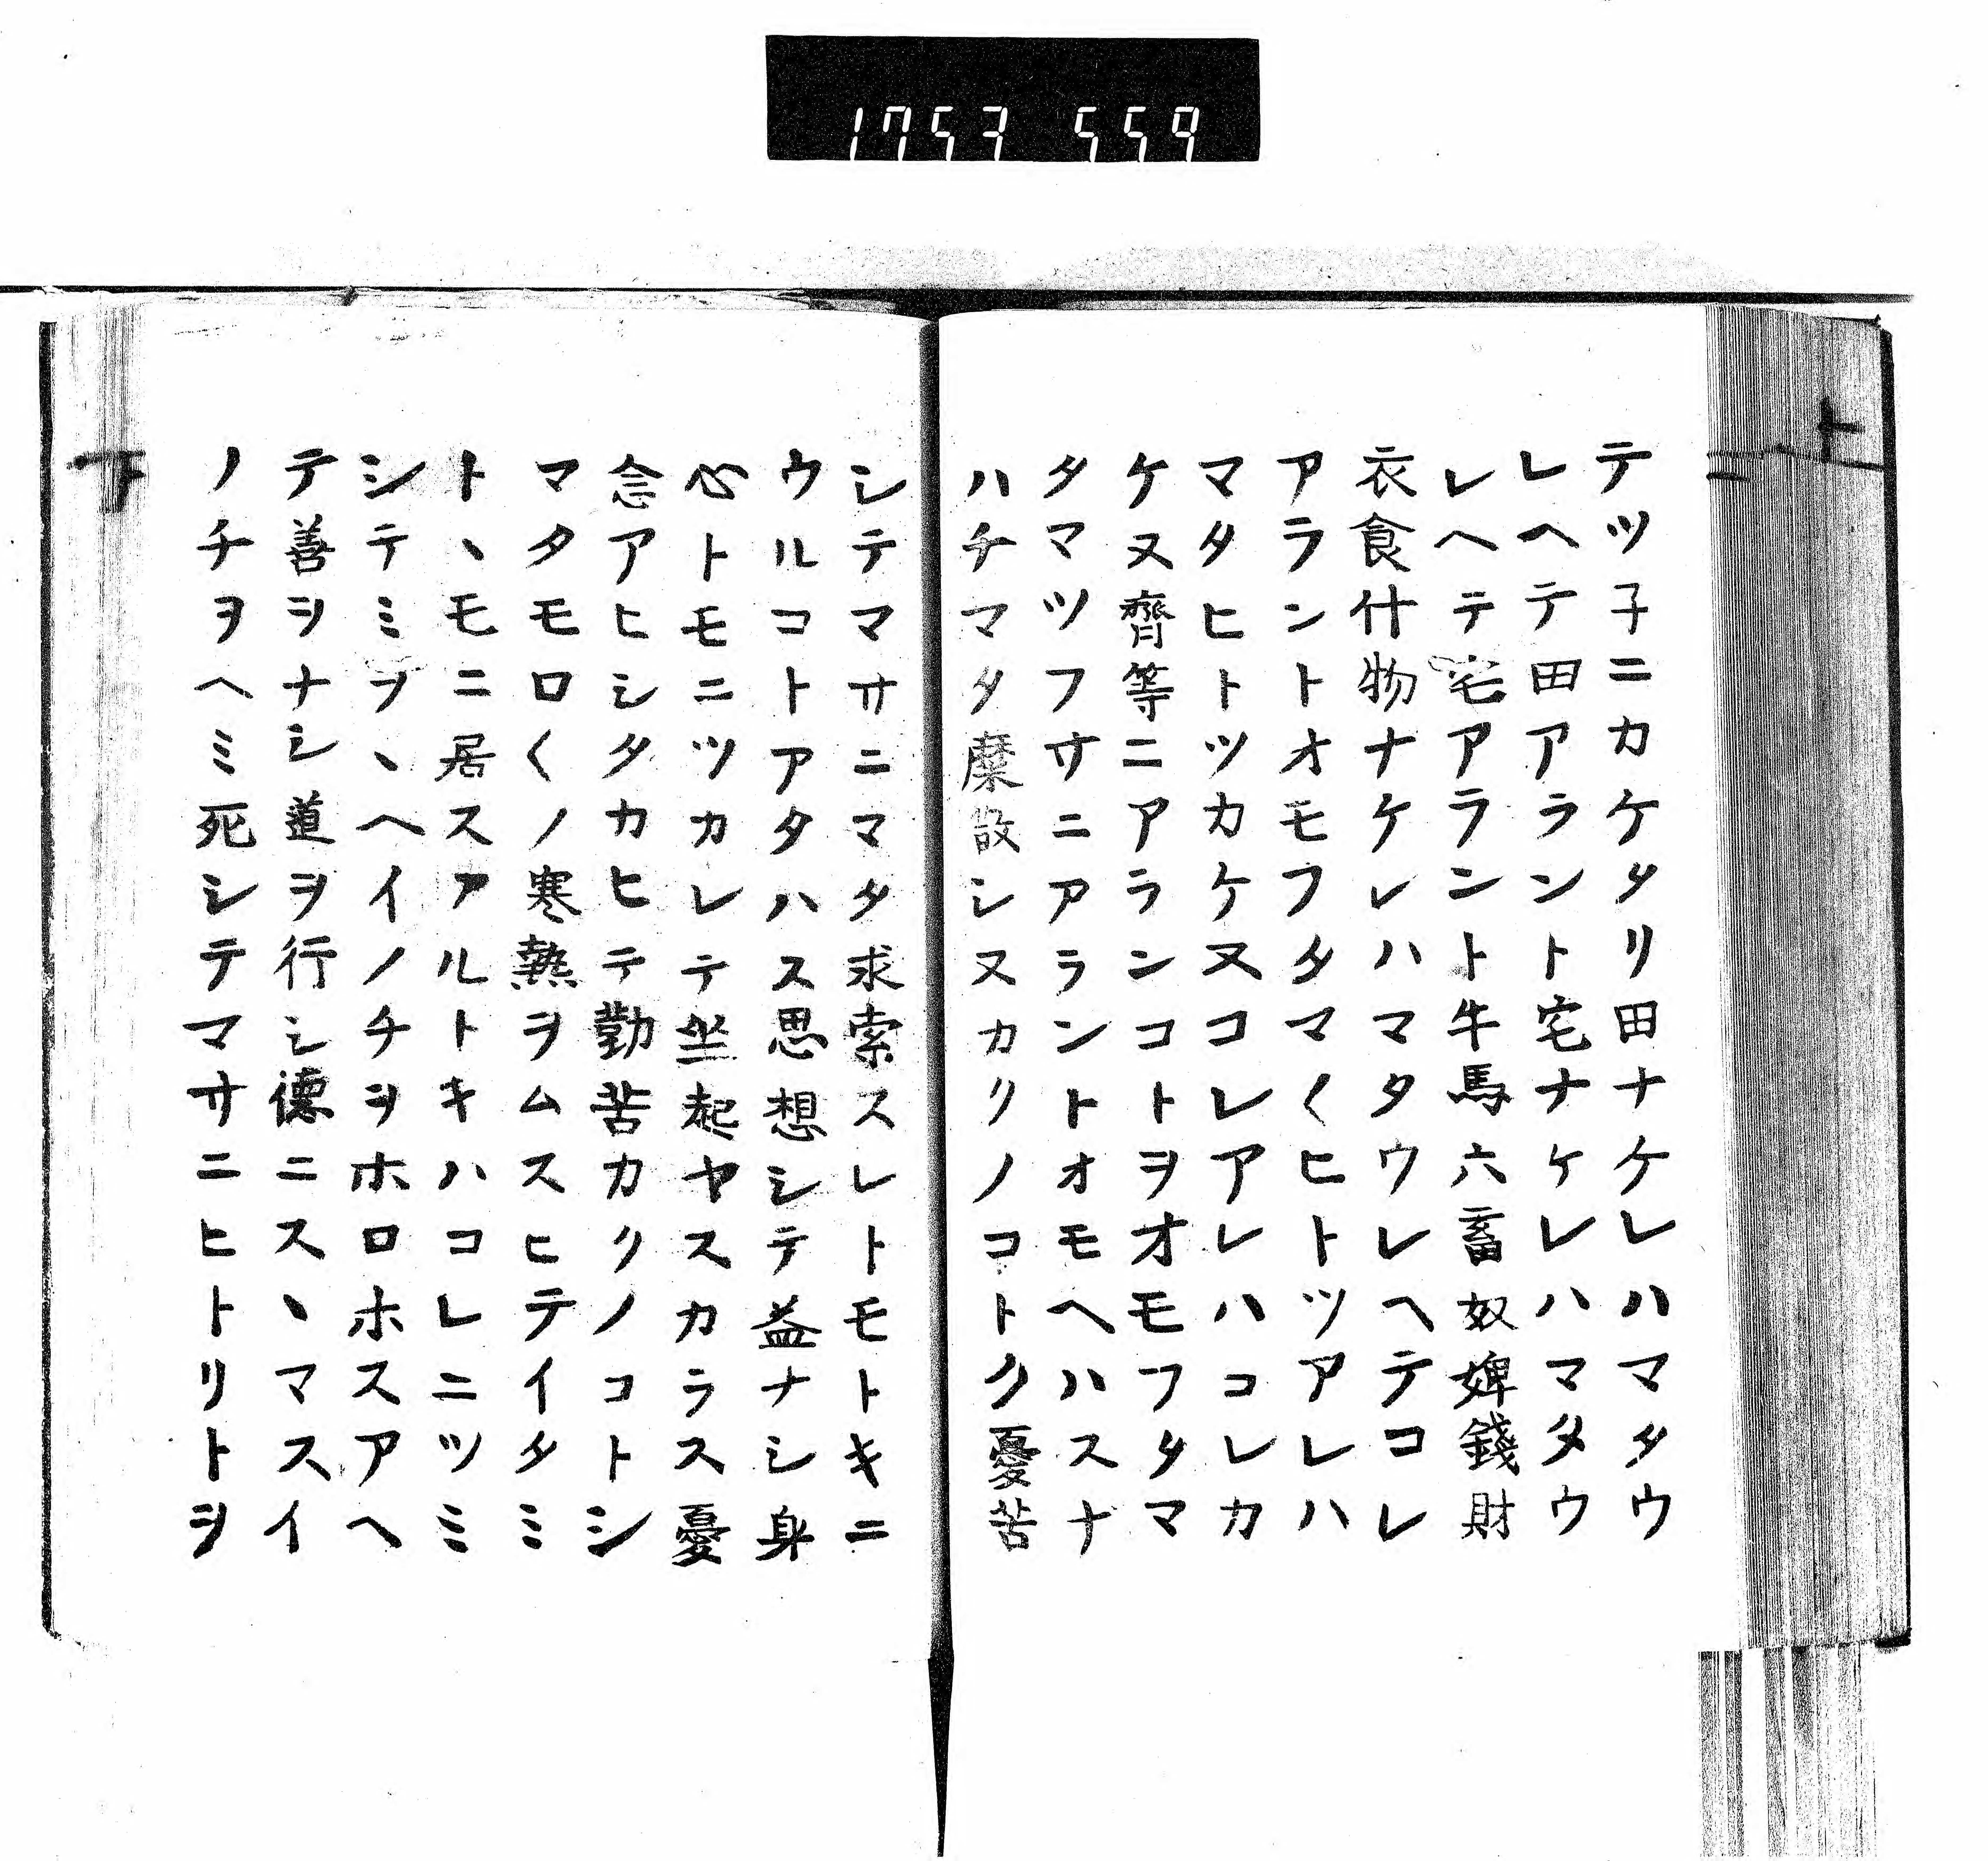 1753 559
テツ子ニカケタリ田ナケレハマタウ
レヘテ田アラント宅ナケレハマタウ
レヘテ宅アラント牛馬六畜奴婢錢財
衣食什物ナケレハマタウレヘテコレ
アラントオモフタマ〱ヒトツアレハ
マタヒトツカケヌコレアレハコレカ
ケヌ齊等ニアランコトヲオモフタマ
タマツフサニアラントオモヘハスナ
ハチマタ糜散シヌカクノコトク憂苦
シテマサニマタ求索スレトモトキニ
ウルコトアタハス思想シテ益ナシ身
心トモニツカレテ坐起ヤスカラス憂
念アヒシタカヒテ勤苦カクノコトシ
マタモロ〱ノ寒熱ヲムスヒテイタミ
トヽモニ居スアルトキハコレニツミ
シテミヲヽヘイノチヲホロホスアヘ
テ善ヲナシ道ヲ行シ德ニスヽマスイ
ノチヲヘミ死シテマサニヒトリトヲ